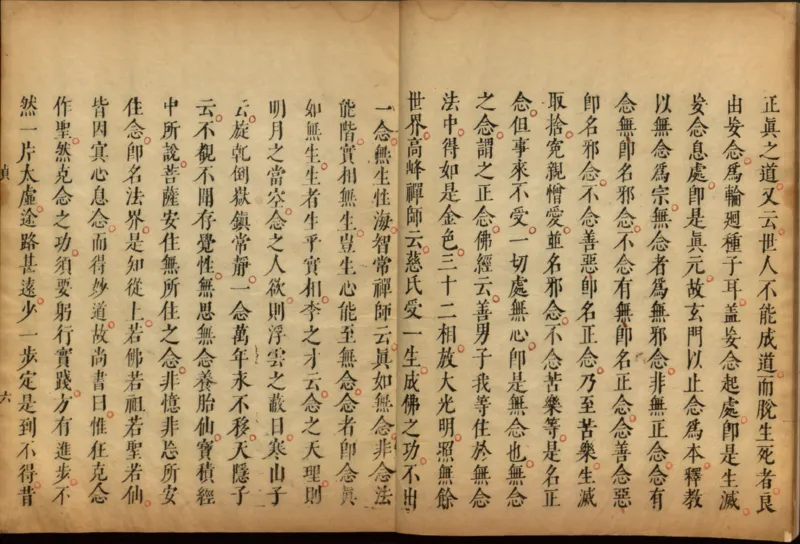 正眞之道又云世人不能成道而脫生死者良
由妄念爲輪廻種子耳蓋妄念起處卽是生滅
妄念息處卽是眞元故玄門以止念爲本釋教
以無念爲宗無念者爲無邪念非無正念念有
念無卽名邪念不念有無卽名正念念善念惡
卽名邪念不念善惡卽名正念乃至苦樂生滅
取捨寃親憎愛並名邪念不念苦樂等是名正
念但事來不受一切處無心卽是無念也無念
之念謂之正念佛經云善男子我等住於無念
法中得如是金色三十二相放大光明照無餘
世界高峰禪師云慈氏受一生成佛之功不出
一念無生性海智常禪師云眞如無念非念法
能階實相無生豈生心能至無念念者卽念眞
如無生生者生乎實相李之才云念之天理則
明月之當空念之人欲則浮雲之蔽日寒山子
云旋乾倒嶽鎮常靜一念萬年永不移天隱子
云不觀不聞存覺性無思無念養胎仙寶積經
中所說菩薩安住無所住之念非憶非忘所安
住念卽名法界是知從上若佛若祖若聖若仙
皆因寘心息念而得妙道故尚書曰惟狂克念
作聖然克念之功須要躬行實踐方有進步不
然一片大虛途路甚遠少一步定是到不得昔
六